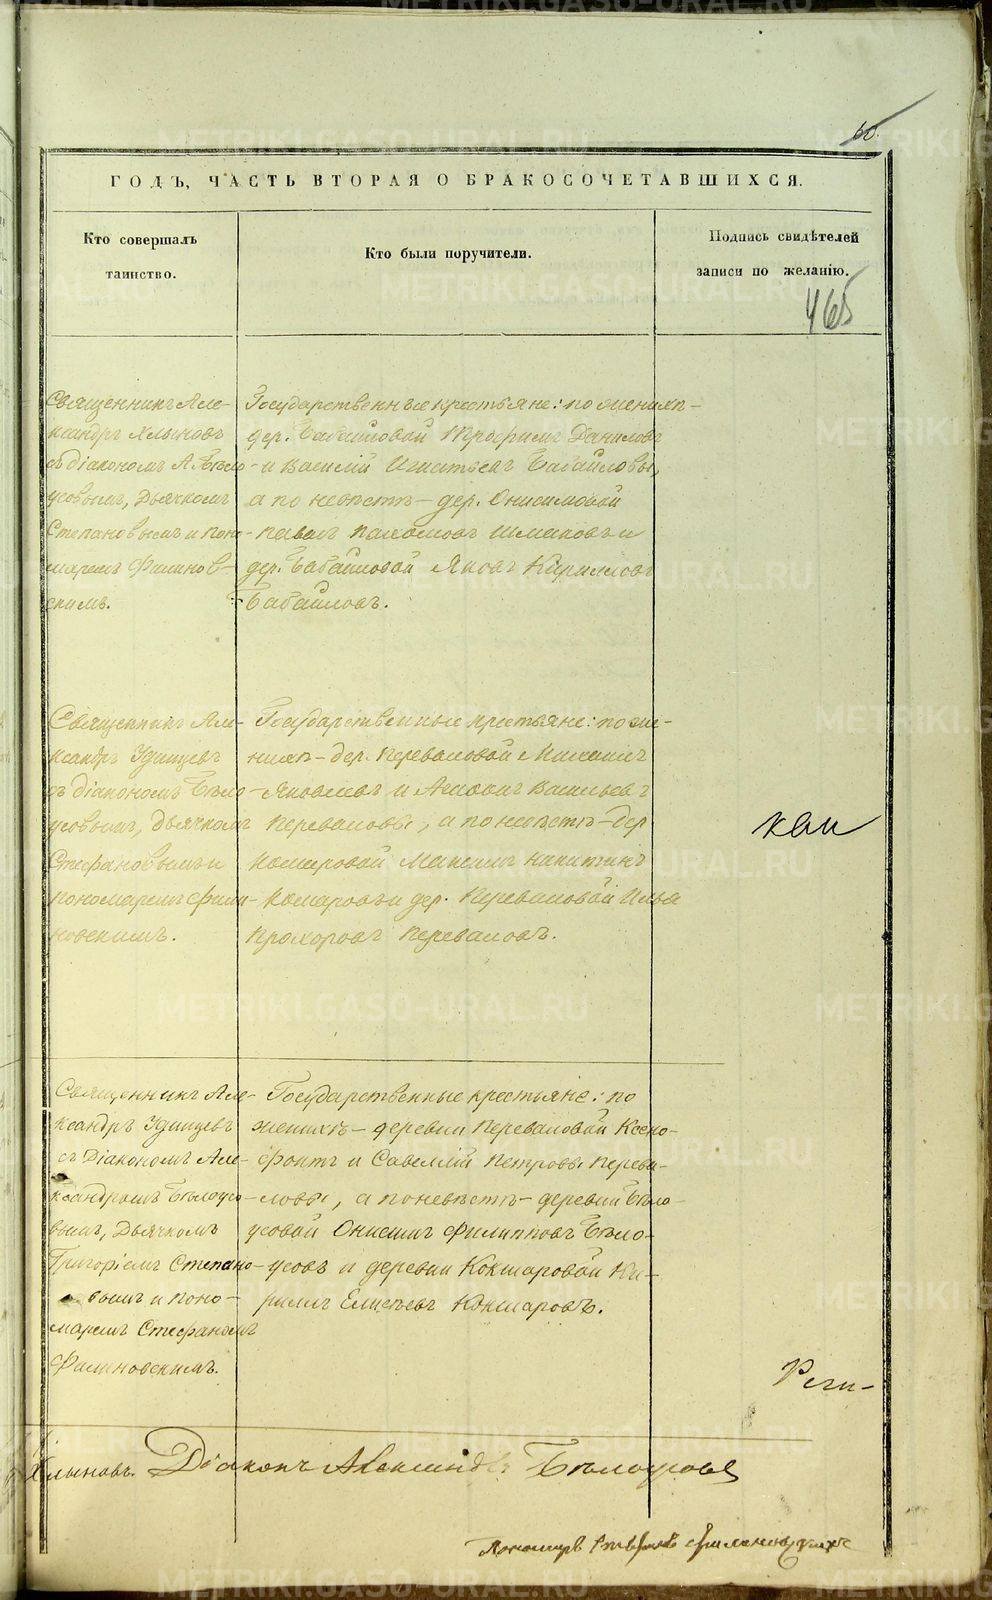 60.
ГОДЪ, ЧАСТЬ ВТОРАЯ О БРАКОСОЧЕТАВШИХСЯ.
Кто совершалъ
таинство.
Кто были поручители.
Подпись свидѣтелей
записи по желанію.
465
Священникъ Але-
ксандръ Хлыновъ
съ діакономъ А. Бѣло-
усовымъ, Дьячкомъ
Степановымъ и поно-
маремъ Филинов-
скимъ.
Государственные крестьяне: по женихѣ-
дер. Бабаиловой Трофимъ Даниловъ
и Василій Игнатьевъ Бабаиловы,
а по невѣстѣ - дер. Онисимовой
Павелъ Пахомовъ Шмаковъ и
дер. Бабаиловой Яковъ Кирилловъ
Бабаиловъ.
Священникъ Але-
ксандръ Удинцевъ
съ діакономъ Бѣло-
усовымъ, Дьячкомъ
Стефановымъ и
пономаремъ Фили-
новскимъ.
Государственные крестьяне: по же-
нихѣ - дер. Переваловой Михаилъ
Яковлевъ и Агафонъ Васильевъ
Переваловы, а по невѣстѣ - дер.
Комаровой Максимъ Никитинъ
Комаровъ и дер. Переваловой Илья
Прохоровъ Переваловъ.
кви
Священникъ Але-
ксандръ Удинцевъ
съ Діакономъ Але-
ксандромъ Бѣлоусо-
вымъ, Дьячкомъ
Григоріемъ Степано-
вымъ и поно-
маремъ Стефаномъ
Филиновскимъ.
Государственные крестьяне: по
женихѣ - деревни Переваловой Ксено-
фонтъ и Савелій Петровы Перева-
ловы, а по невѣстѣ - деревни Бѣло-
усовой Онисимъ Филипповъ Бѣло-
усовъ и деревни Кокшаровой Ки-
рилъ Елисѣевъ Кокшаровъ.
Реги-
Хлыновъ. Діаконъ Александръ Бѣлоусовъ
Пономарь Стефанъ Филиновскихъ
METRIKI.GASO-URAL.RU